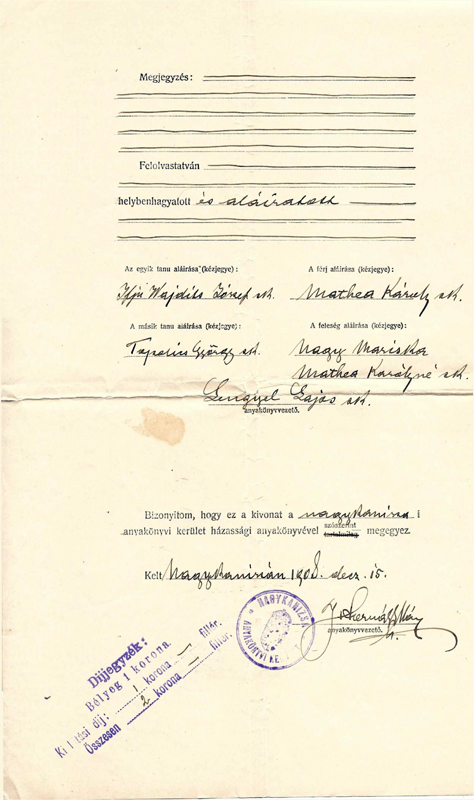 Megjegyzés:
Felolvastatván
helybenhagyatott és aláíratott
Az egyik tanu aláirása (kézjegye):
A férj aláirása (kézjegye):
Ifjú Wajdits József sk.
Mathea Károly sk.
A másik tanu aláirása (kézjegye):
A feleség aláirása (kézjegye):
György sk.
Nagy Mariska
Mathea Károlyné sk.
Lengyel Lajos sk.
anyakönyvvezető.
Bizonyitom, hogy ez a kivonat a nagykanizsa i
anyakönyvi kerület házassági anyakönyvével szószerint megegyez.
Kelt Nagykanizsán 1908. decz. 15.
anyakönyvvezető.
NAGYKANIZSA
Díjjegyzék:
Bélyeg 1 korona — fillér.
Ki l tási díj: 1 korona — fillér.
Összesen 2 korona —